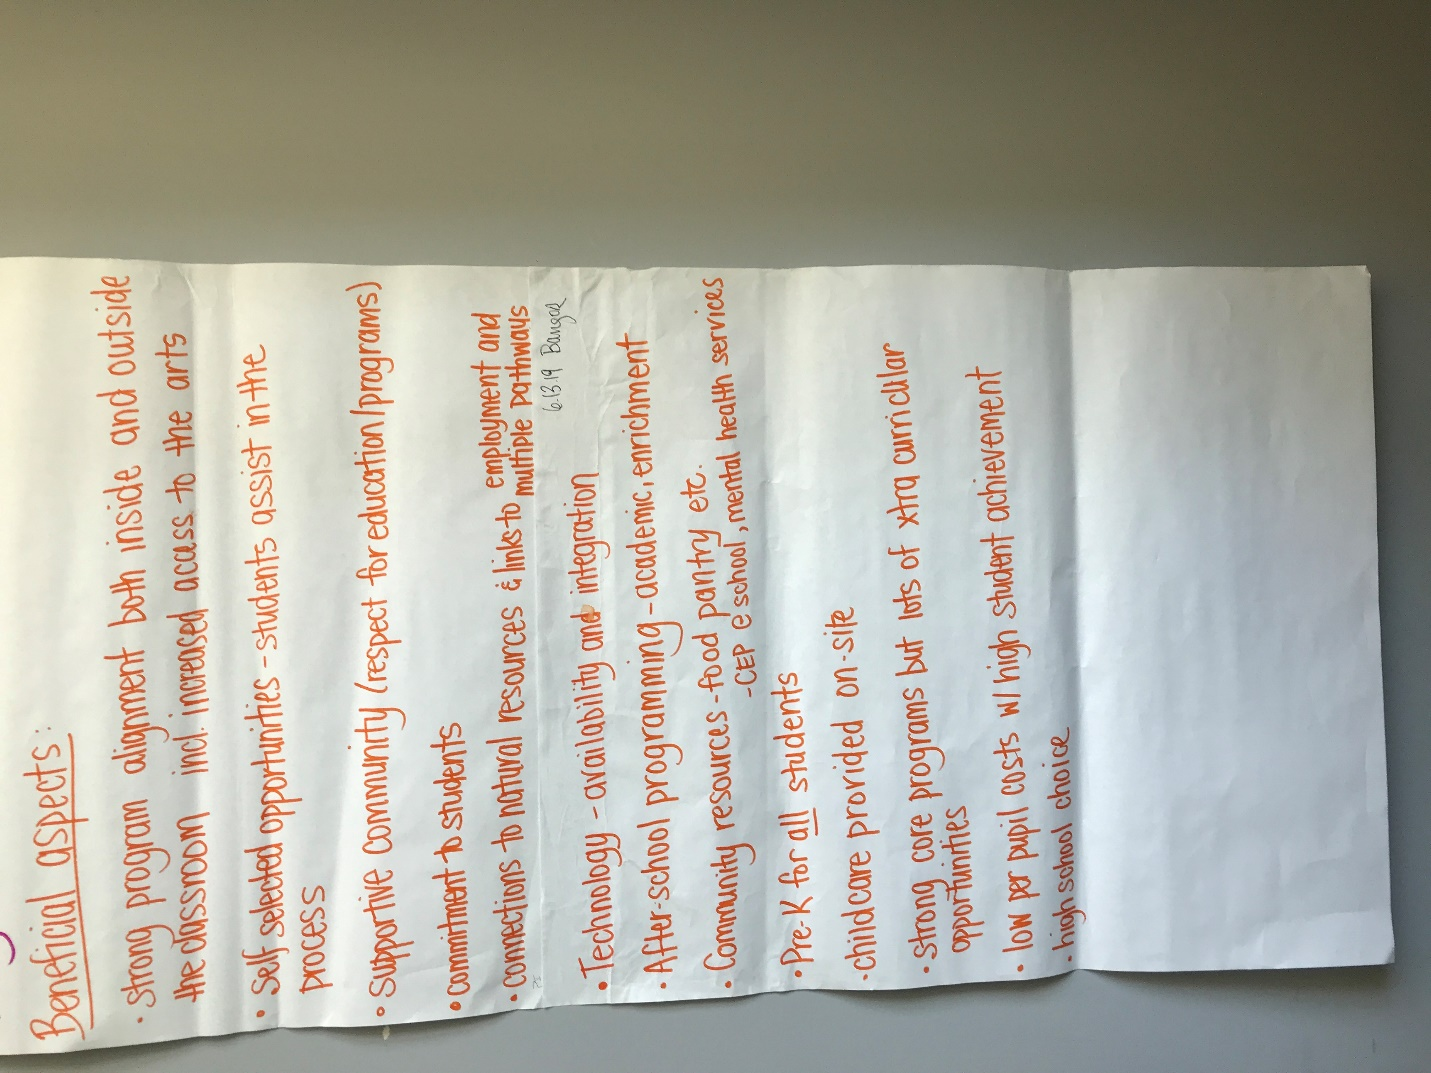 Beneficial aspects:
• strong program alignment both inside and outside
the classroom incl. increased access to the arts
• Self selected opportunities - students assist in the
process
• Supportive community (respect for education/programs)
• commitment to students
• connections to natural resources & links to employment and
multiple pathways
6.13.19 Bangor
• Technology - availability and integration
• After-school programming - academic, enrichment
• Community resources - food pantry etc.
- CEP @ school, mental health services
• Pre-K for all students
• childcare provided on-site
• strong core programs but lots of xtra curricular
opportunities
• low per pupil costs w/ high student achievement
• high school choice